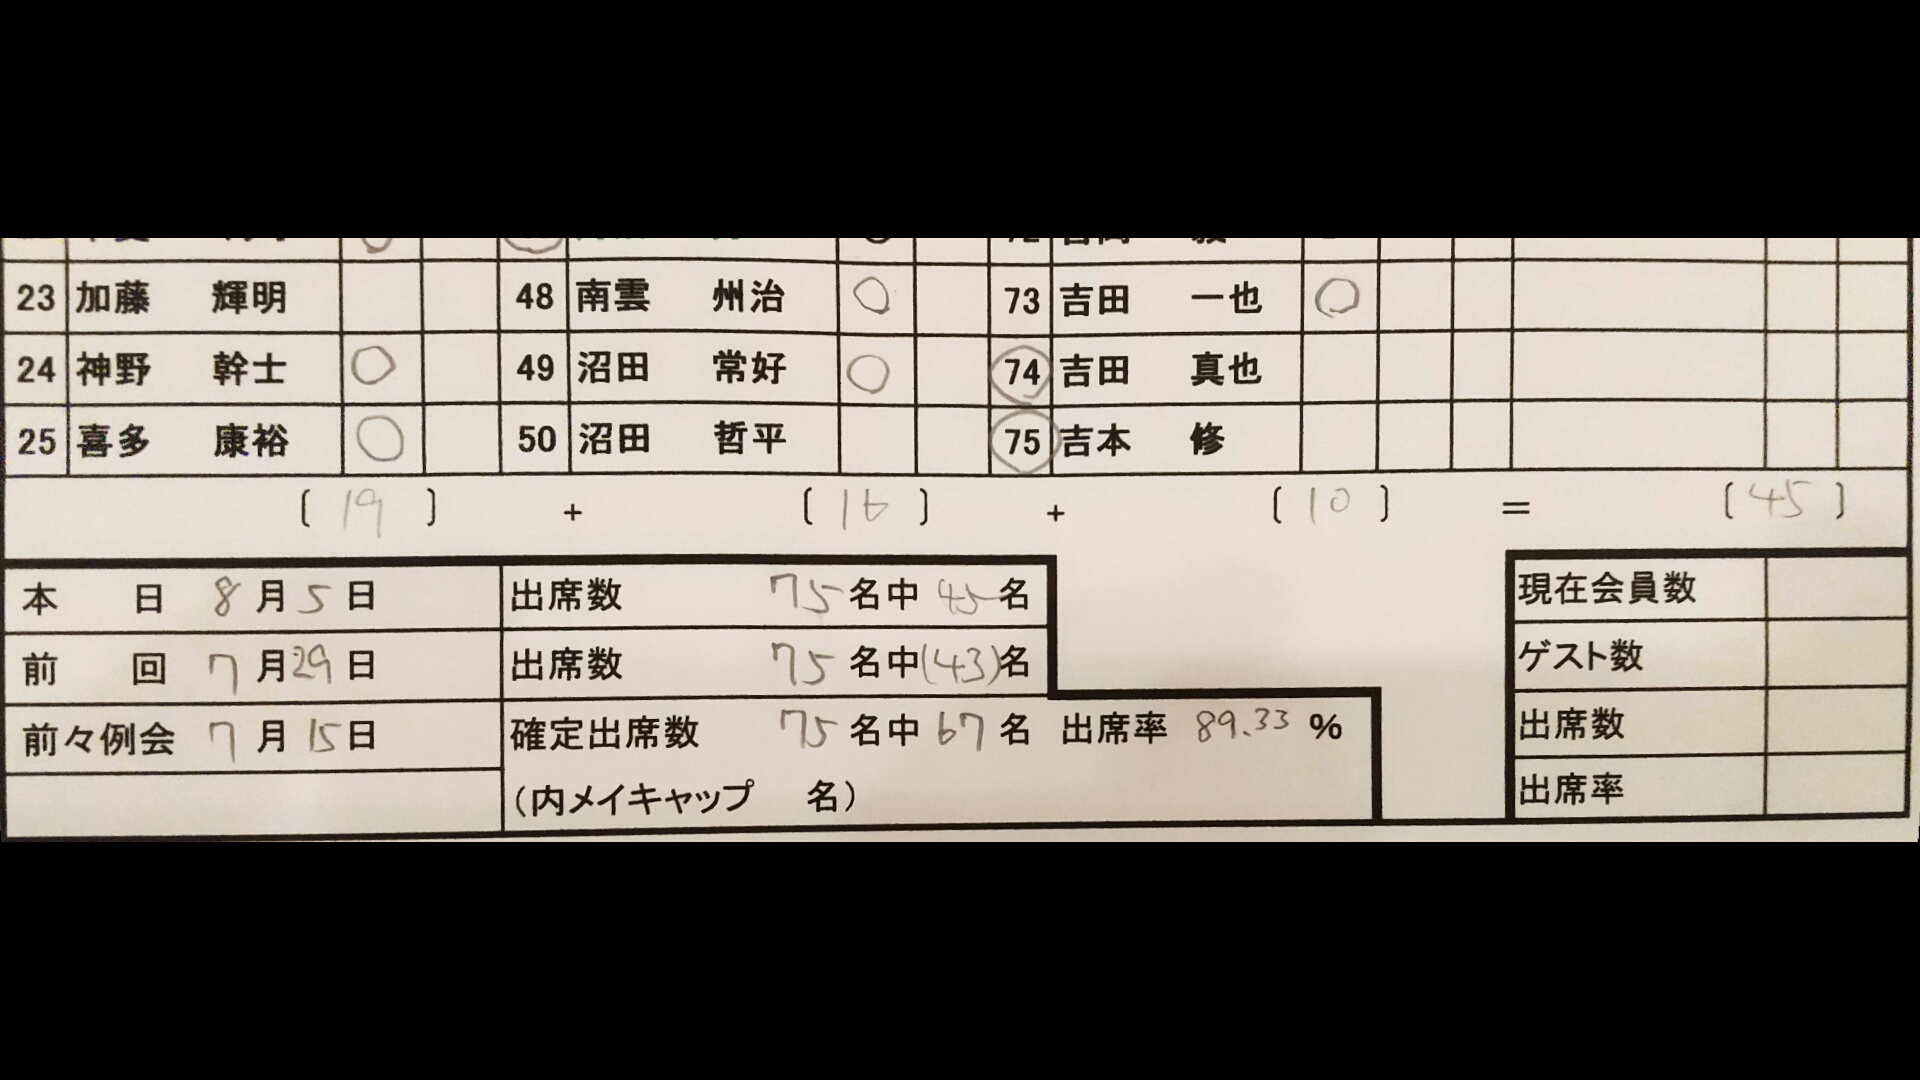 23 加藤 輝明 48 南雲 州治 ○ 73 吉田 一也 ○
24 神野 幹士 ○ 49 沼田 常好 ○ 74 吉田 真也
25 喜多 康裕 ○ 50 沼田 哲平 75 吉本 修
〔 19 〕 + 〔 16 〕 + 〔 10 〕 = 〔 45 〕
本 日 8月5日 出席数 75名中45名
前 回 7月29日 出席数 75名中(43)名
前々例会 7月15日 確定出席数 75名中67名 出席率 89.33 %
(内メイキャップ 名)
現在会員数
ゲスト数
出席数
出席率